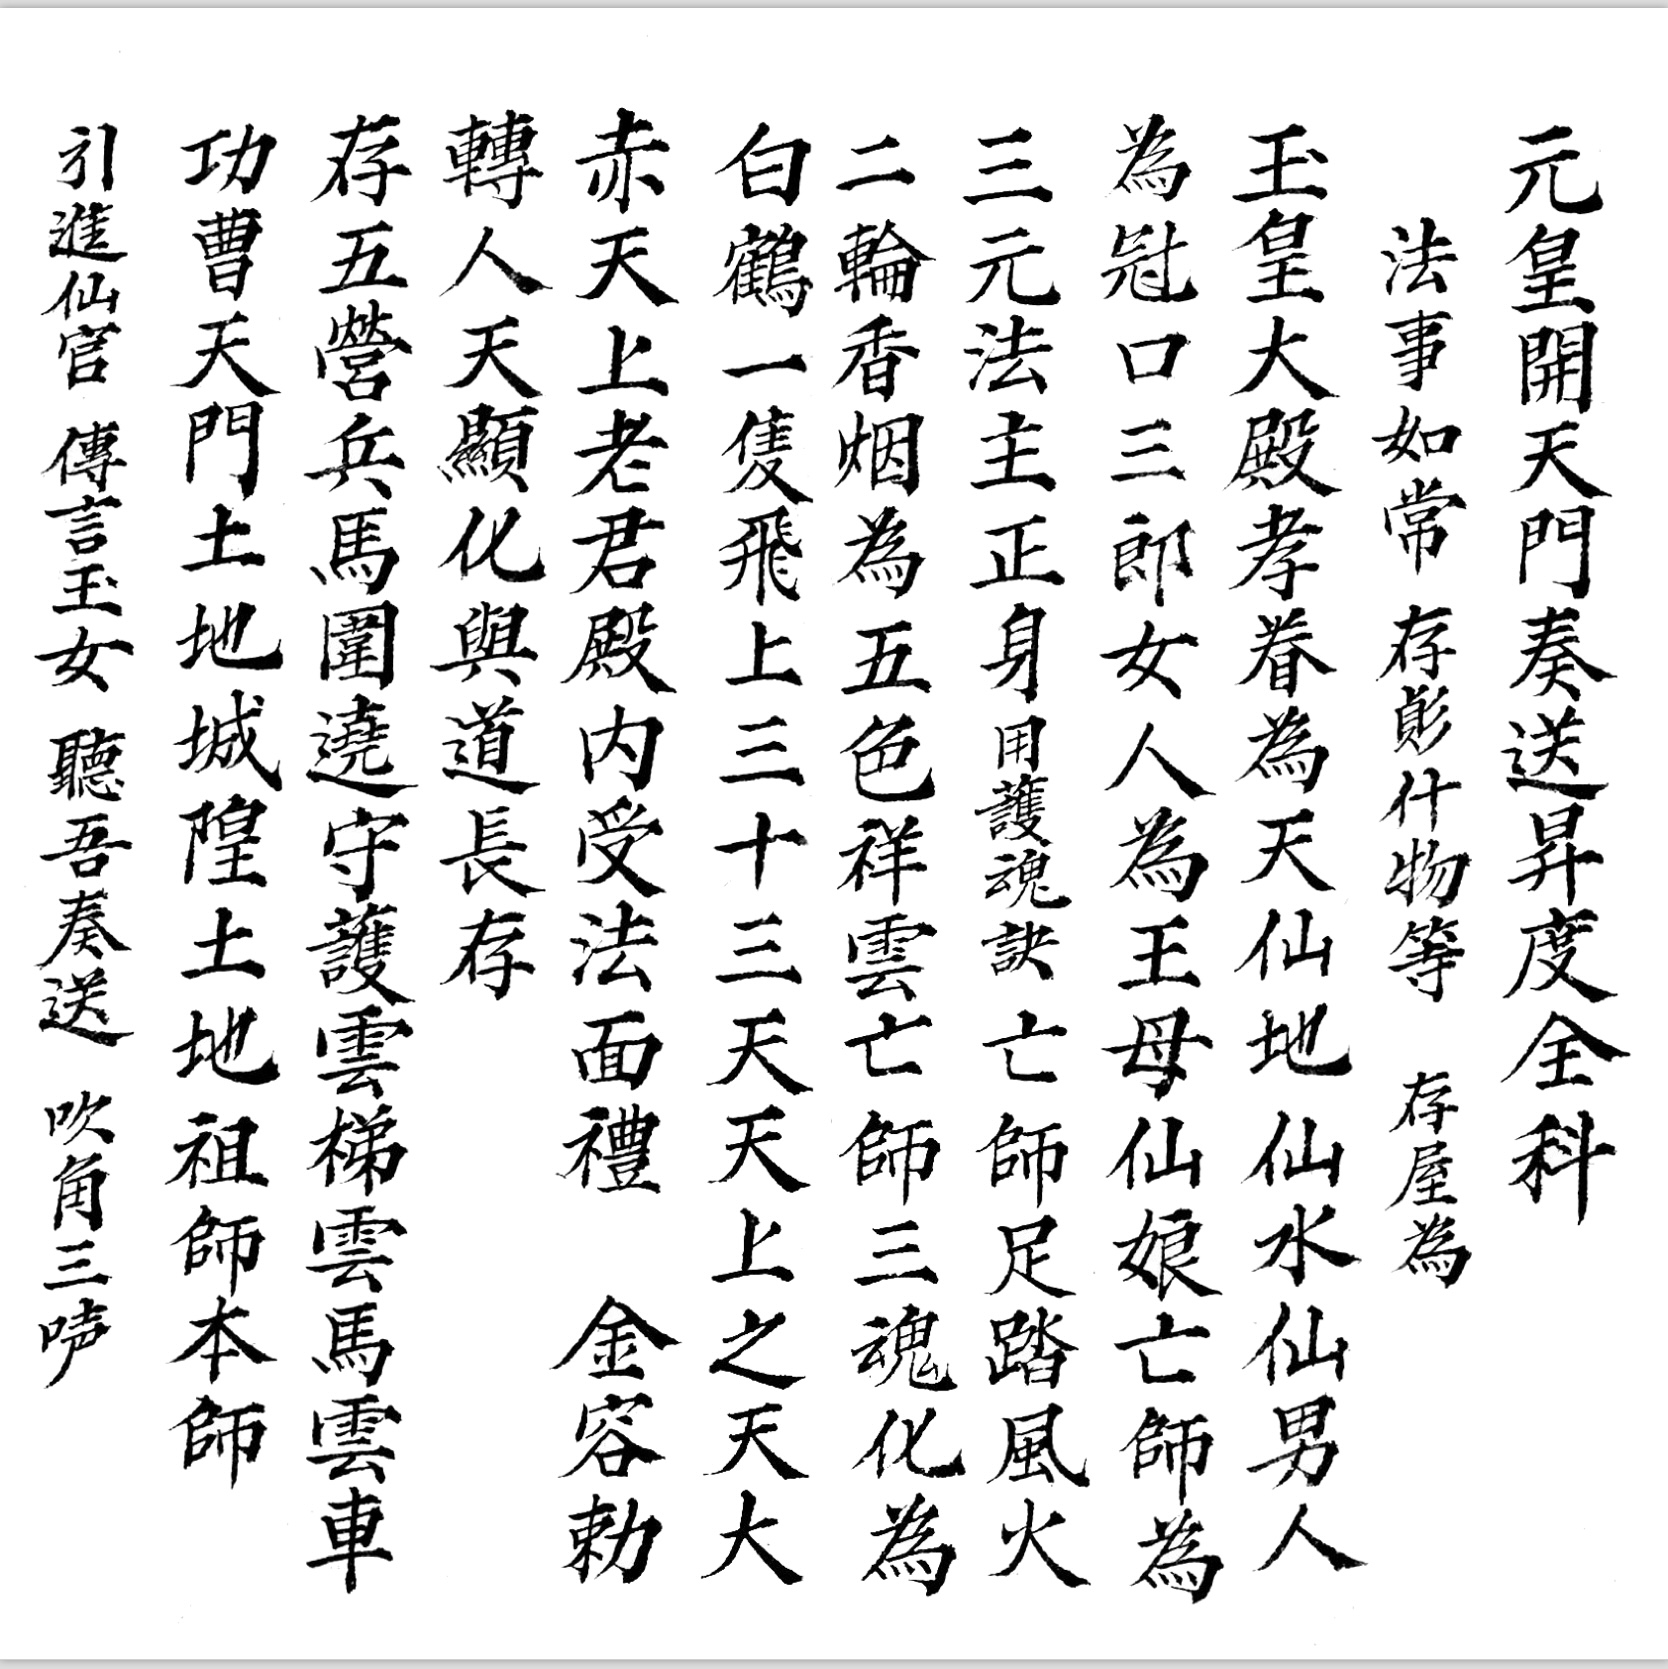 元皇開天門奏送昇度全科
法事如常 存 什物等 存屋為
玉皇大殿孝眷為天仙地仙水仙男人
為 口三郎女人為王母仙娘亡師為
三元法主正身用護魂訣亡師足踏風火
二輪香烟為五色祥雲亡師三魂化為
白鶴一隻飛上三十三天天上之天大
赤天上老君殿内受法面禮 金容勅
轉人天顯化與道長存
存五營兵馬圍遶守護雲梯雲馬雲車
功曹天門土地城隍土地祖師本師
引進仙官 傳言玉女 聽吾奏送 吹角三𠺕